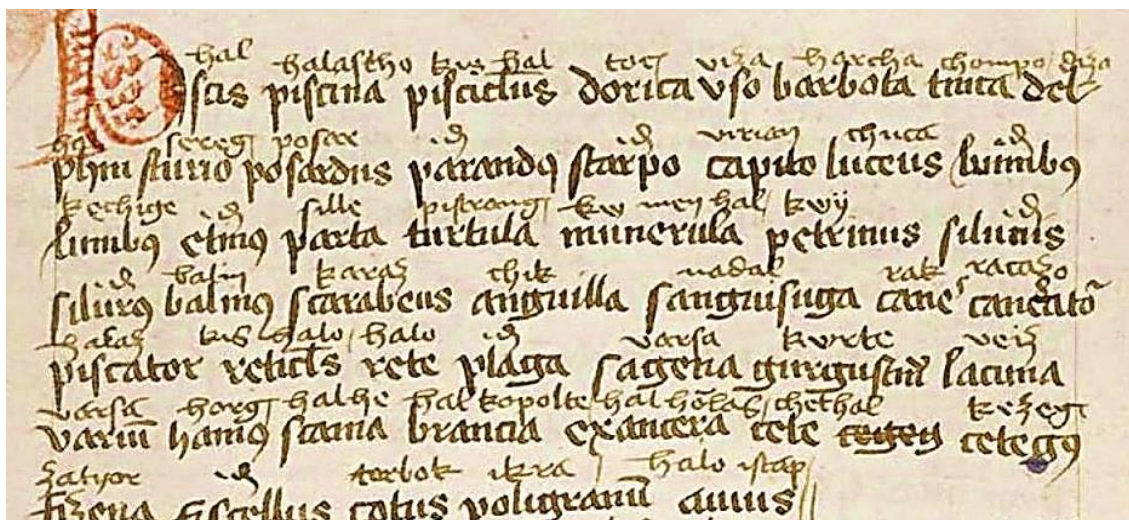 hal halastho kis hal toc viza harcha chompo diza
Piscis piscina pisciclus dorica uso barbota tinca del
hal sereg poser idem idem virian chuca idem
phin sturio posardus parandus starpo capito luceus lumbus
kechige idem sille pistrang kw meny hal kwy idem
lumbus etinus parta turtula munerula petrinus silurus
idem balin karaz chik nadal rak racazo
silurus balinus scarabeus anguilla sanguisuga cancer cancerator
halaz kis halo halo idem varsa kvrte veiz
piscator reticulus rete plaga sagena gurgustium lacuna
varsa horg halhe hal kopolte hal holas chethal kezegi
varium hamus staina brancia exancera cete cetegus
zatyor idem torbok ikra halo istap
fizena fiscellus cotus poligranum amus